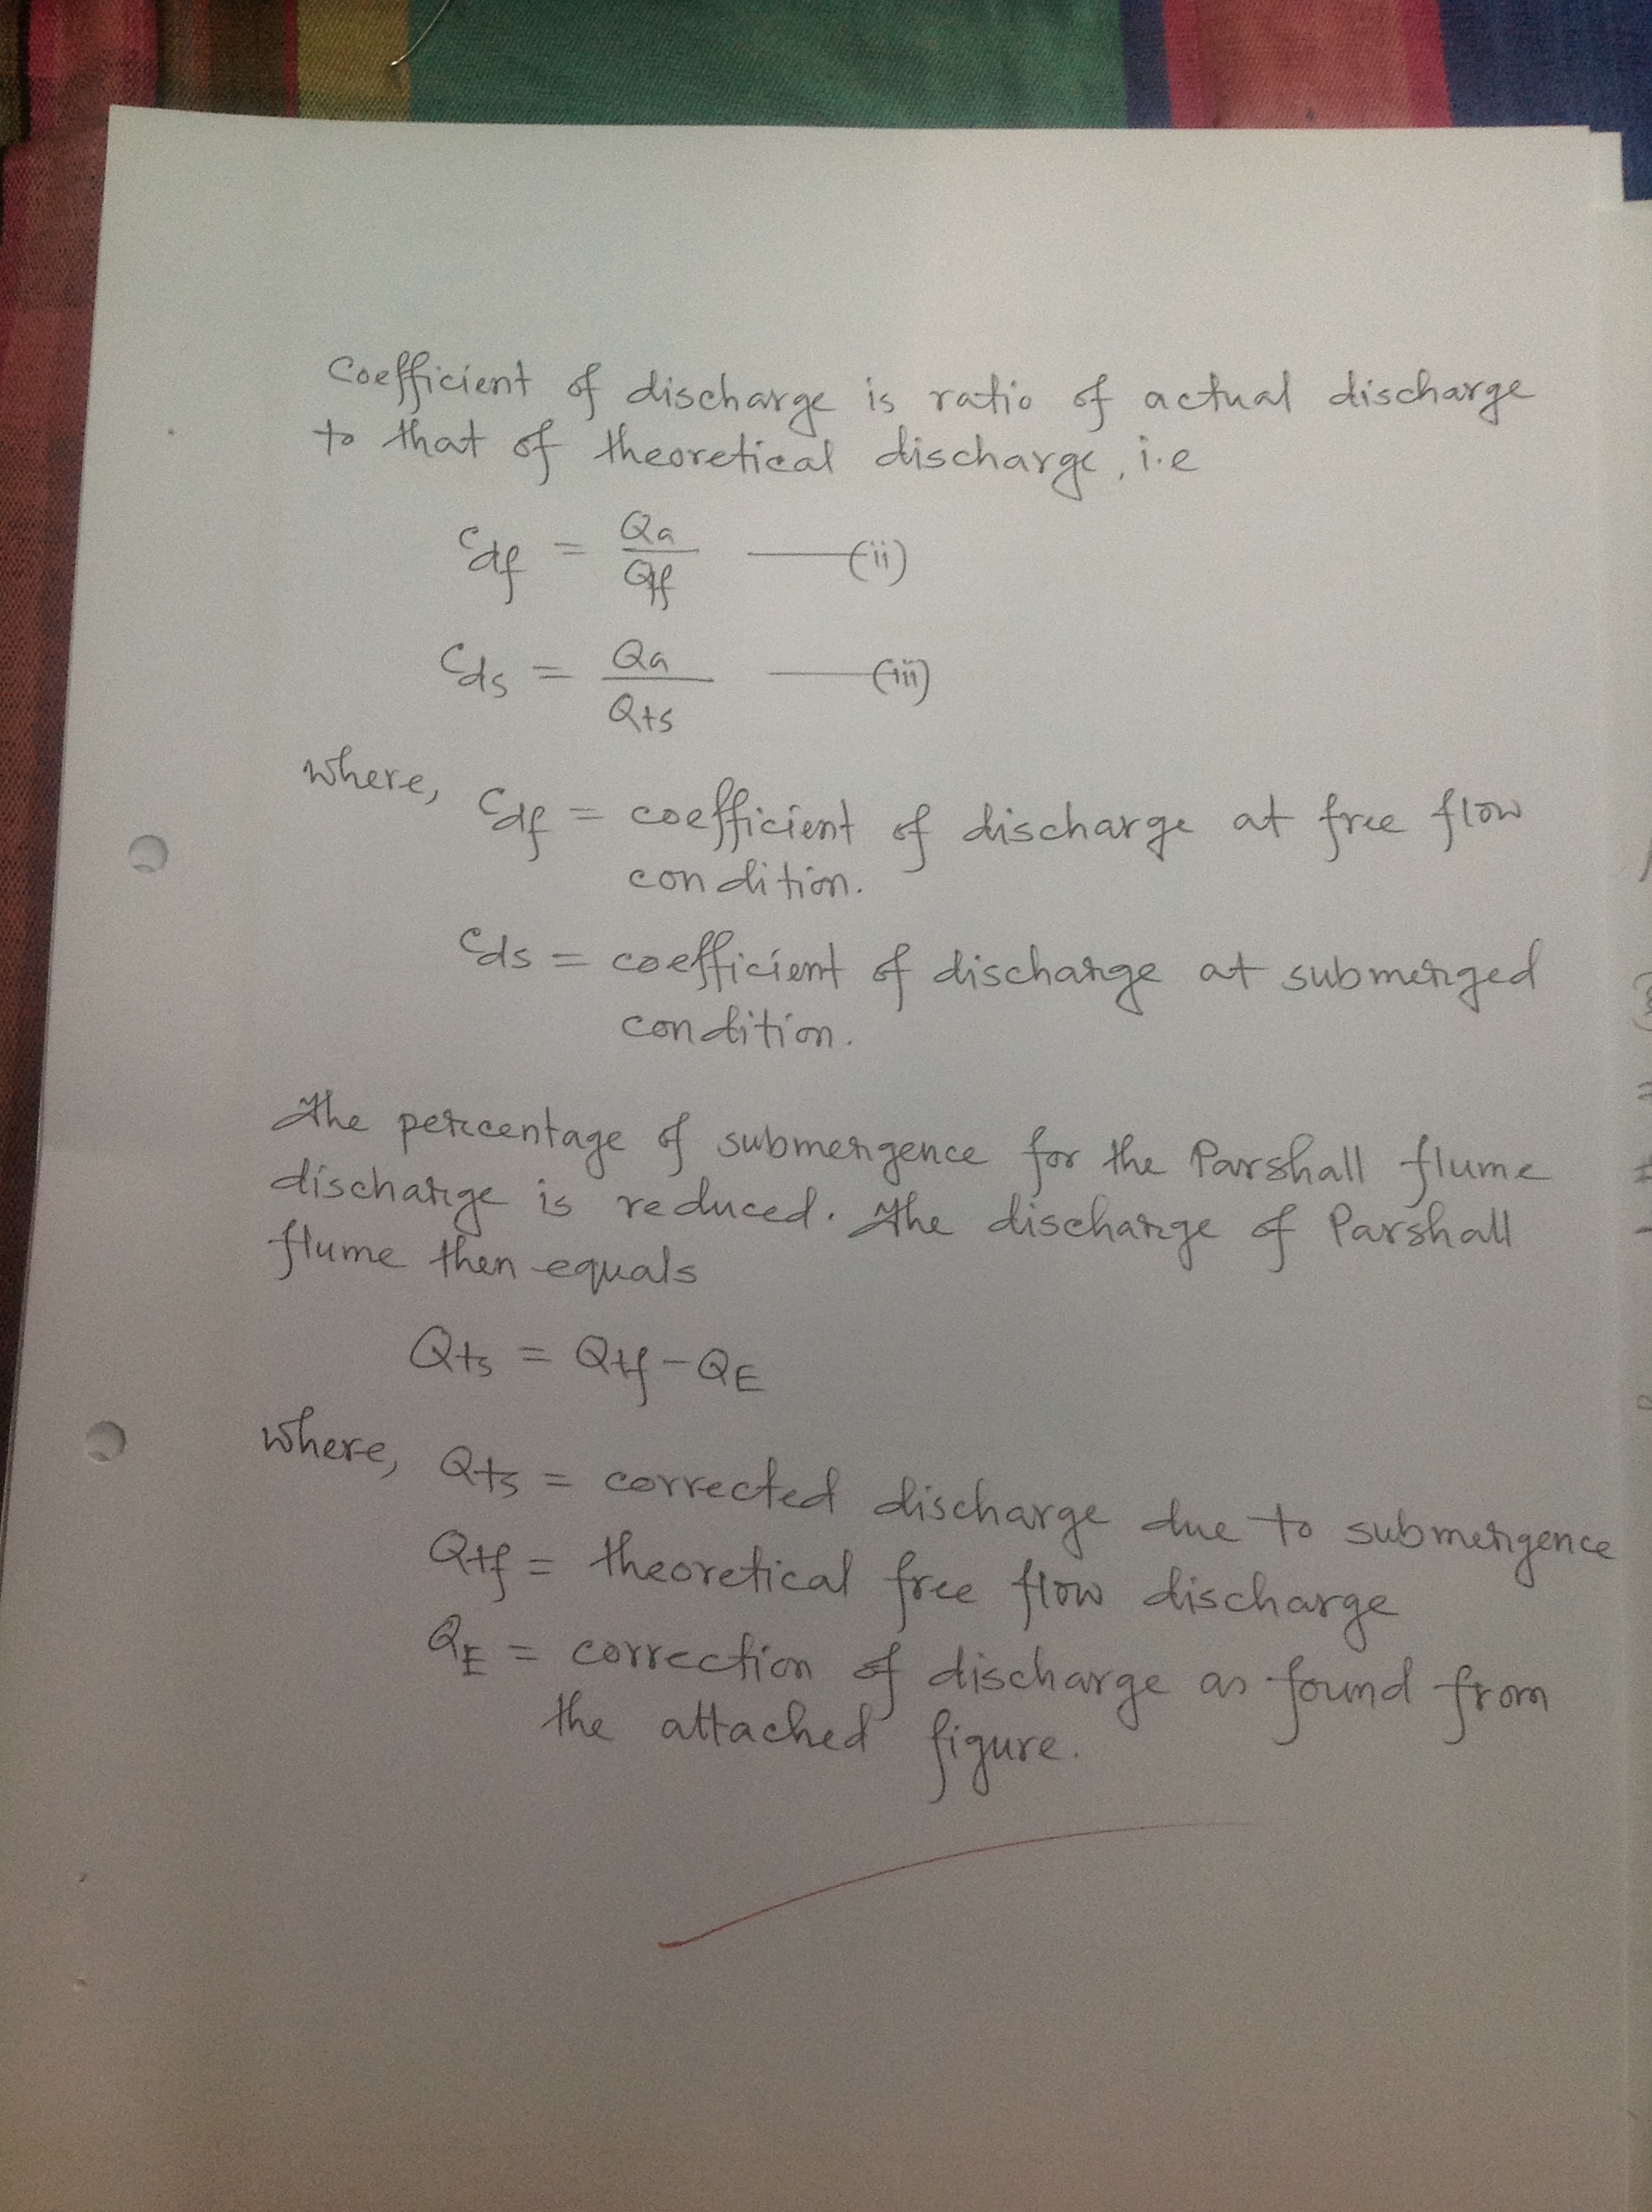 Coefficient of discharge is ratio of actual discharge
to that of theoretical discharge, i.e
Cdf = Qa / Qtf ——(ii)
Cds = Qa / Qts ——(iii)
where,
Cdf = coefficient of discharge at free flow
condition.
Cds = coefficient of discharge at submerged
condition.
The percentage of submergence for the Parshall flume
discharge is reduced. The discharge of Parshall
flume then equals
Qts = Qtf - QE
where, Qts = corrected discharge due to submergence
Qtf = theoretical free flow discharge
QE = correction of discharge as found from
the attached figure.